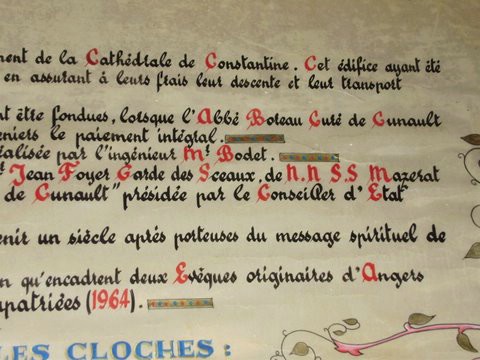 ment de la Cathédrale de Constantine. Cet édifice ayant été
en assurant à leurs frais leur descente et leur transport
nt être fondues, lorsque l'Abbé Boteau Curé de Cunault
eniers le paiement intégral.
éalisée par l'ingénieur Mr Bodet.
Jean Foyer Garde des Sceaux, de N.N S.S Mazerat
de Cunault" présidée par le Conseiller d'Etat
enir un siècle après porteuses du message spirituel de
n qu'encadrent deux Evêques originaires d'Angers
apatriées (1964).
LES CLOCHES :